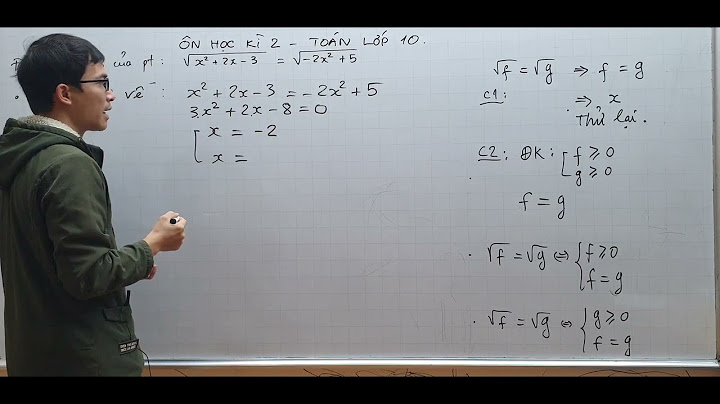 ÔN HỌC KÌ 2 - TOÁN LỚP 10.
của pt: √(x² + 2x - 3) = √(-2x² + 5)
vế: x² + 2x - 3 = -2x² + 5
3x² + 2x - 8 = 0
[ x = -2
x =
√f = √g ⇒ f = g
C1:
⇒ x
Thử lại.
C2: ĐK: [ f ⩾ 0
g ⩾ 0
f = g
. √f = √g ⇔ { f ⩾ 0
f = g
. √f = √g ⇔ { g ⩾ 0
f = g